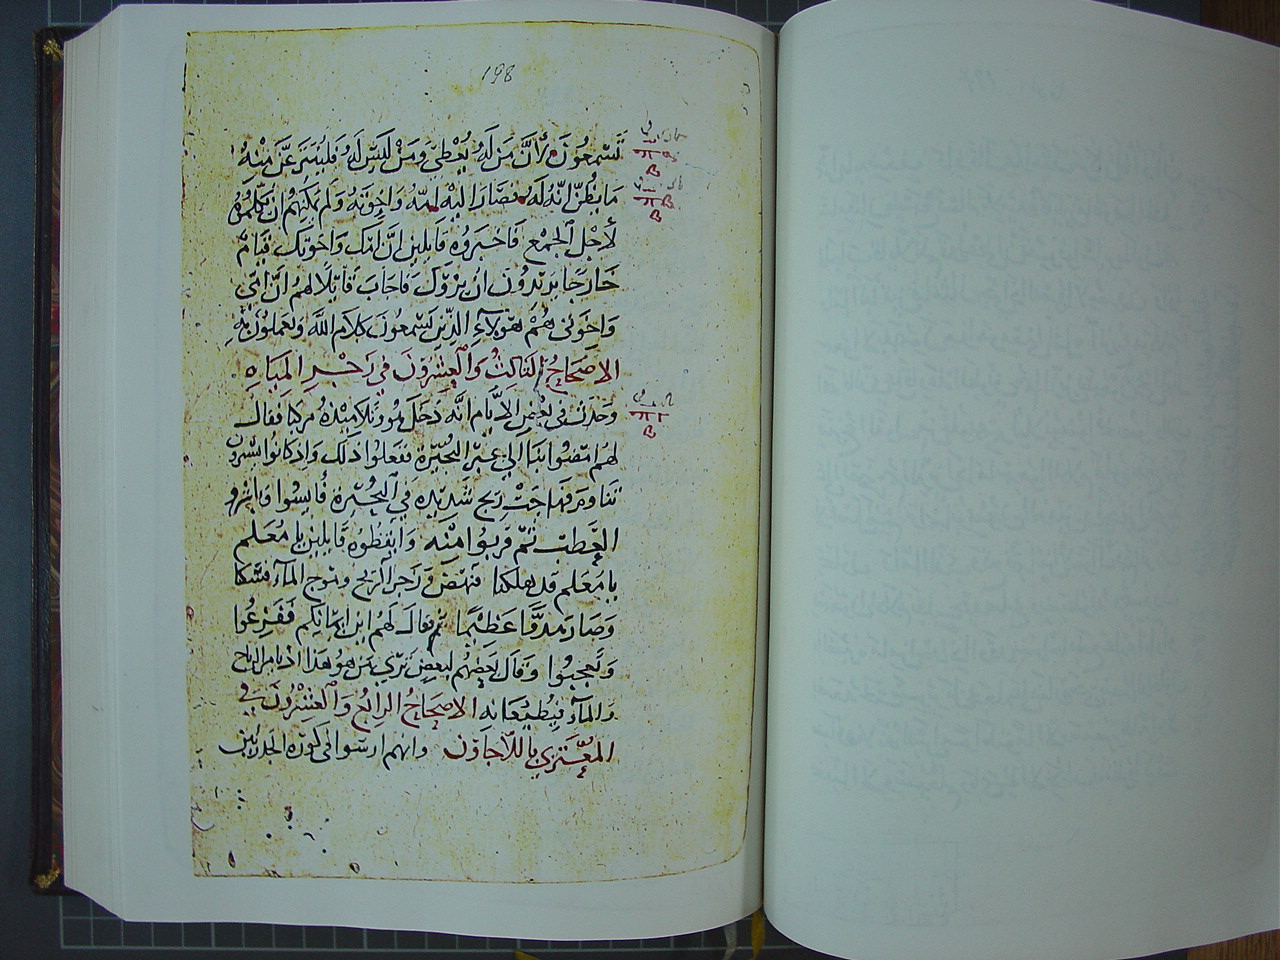 198
تَسْمعُونَ لأَنَّ مَن لَهُ يُعْطَي وَمَنْ لَيْسَ لَهُ فلينتزعَنَّ مِنْهُ
مَا يظُنّ انّهُ لَهُ فصَارَ اليْهِ امّهُ وَاخوَتهُ وَلَم يمكنهُم ان يكلموُهُ
لأجْل الجمْع فَاخبَرُوه قايلين انَّ امّك وَاخوتك قيَامٌ
خَارجًا يريْدُون ان يروْك فَاجَابَ قَائِلًا لهُم انَّ امّي
وَاخوَتي هُمْ هَوْلآءِ الذِين يَسْمعُونَ كلاَم اللَّه وَيَعملوُن بِهِ
الاصَحَاحُ الثَالِثُ وَالْعِشرُوْنَ في زَجْرِ المِيَاهِ
وَحَدث في بَعْضِ الأيَّام انَّه دَخَل هُو وَتلامِيْذهُ مركبا فقال
لهُم امضُوا بنَا الَى عبْر البُحَيْرَة ففعَلوُا ذلَك وَاذ كانوُا يسَيرون
شَدِيْده في البُحَيْرَة
العَطب ثمّ قربُوا منْه وَايقظوُه قايلين يا مُعَلم
يا مَعَلم قد هلَكنا فنهَضَ وَزَجر الرّيح وموج المآء فسَكنا
وَصَار هدوًا عَظيْمًا ثم قالَ لَهُم اين ايمَانكم فَفَزعُوا
وَتعجبُوا وَقَال بَعضهُم لبَعضٍ ترَي مَن هُو هَذا اذ يامر الرياح
وَالمآء فيُطيْعَانهِ الاصحَاحُ الرابعُ وَالعشْرُونَ في
المعُتَري باللاجاوْن وانهم ارسَوا في كوُرَة الجدريّين